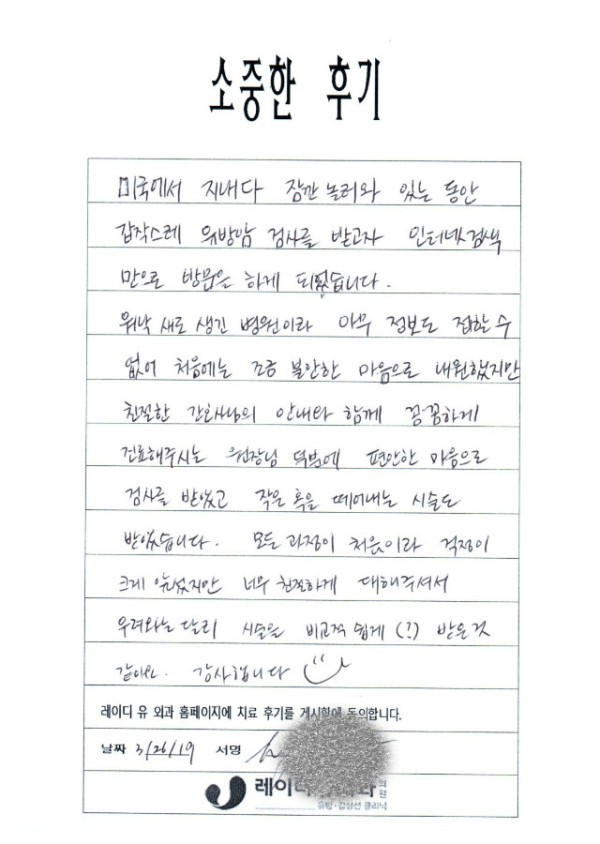 소중한 후기
미국에서 지내다 잠깐 놀러와 있는 동안
갑작스레 유방암 검사를 받고자 인터넷검색
만으로 방문을 하게 되었습니다.
워낙 새로 생긴 병원이라 아무 정보도 접할 수
없어 처음에는 조금 불안한 마음으로 내원했지만
친절한 간호사님의 안내와 함께 꼼꼼하게
진료해주시는 원장님 덕분에 편안한 마음으로
검사를 받았고 작은 혹을 떼어내는 시술도
받았습니다. 모든 과정이 처음이라 걱정이
크게 앞섰지만 너무 친절하게 대해주셔서
우려와는 달리 시술을 비교적 쉽게 (?) 받은것
같아요. 감사합니다
레이디 유 외과 홈페이지에 치료 후기를 게시함에 동의합니다.
날짜 3/26/19 서명
레이디 과 의원
유방·갑상선 클리닉